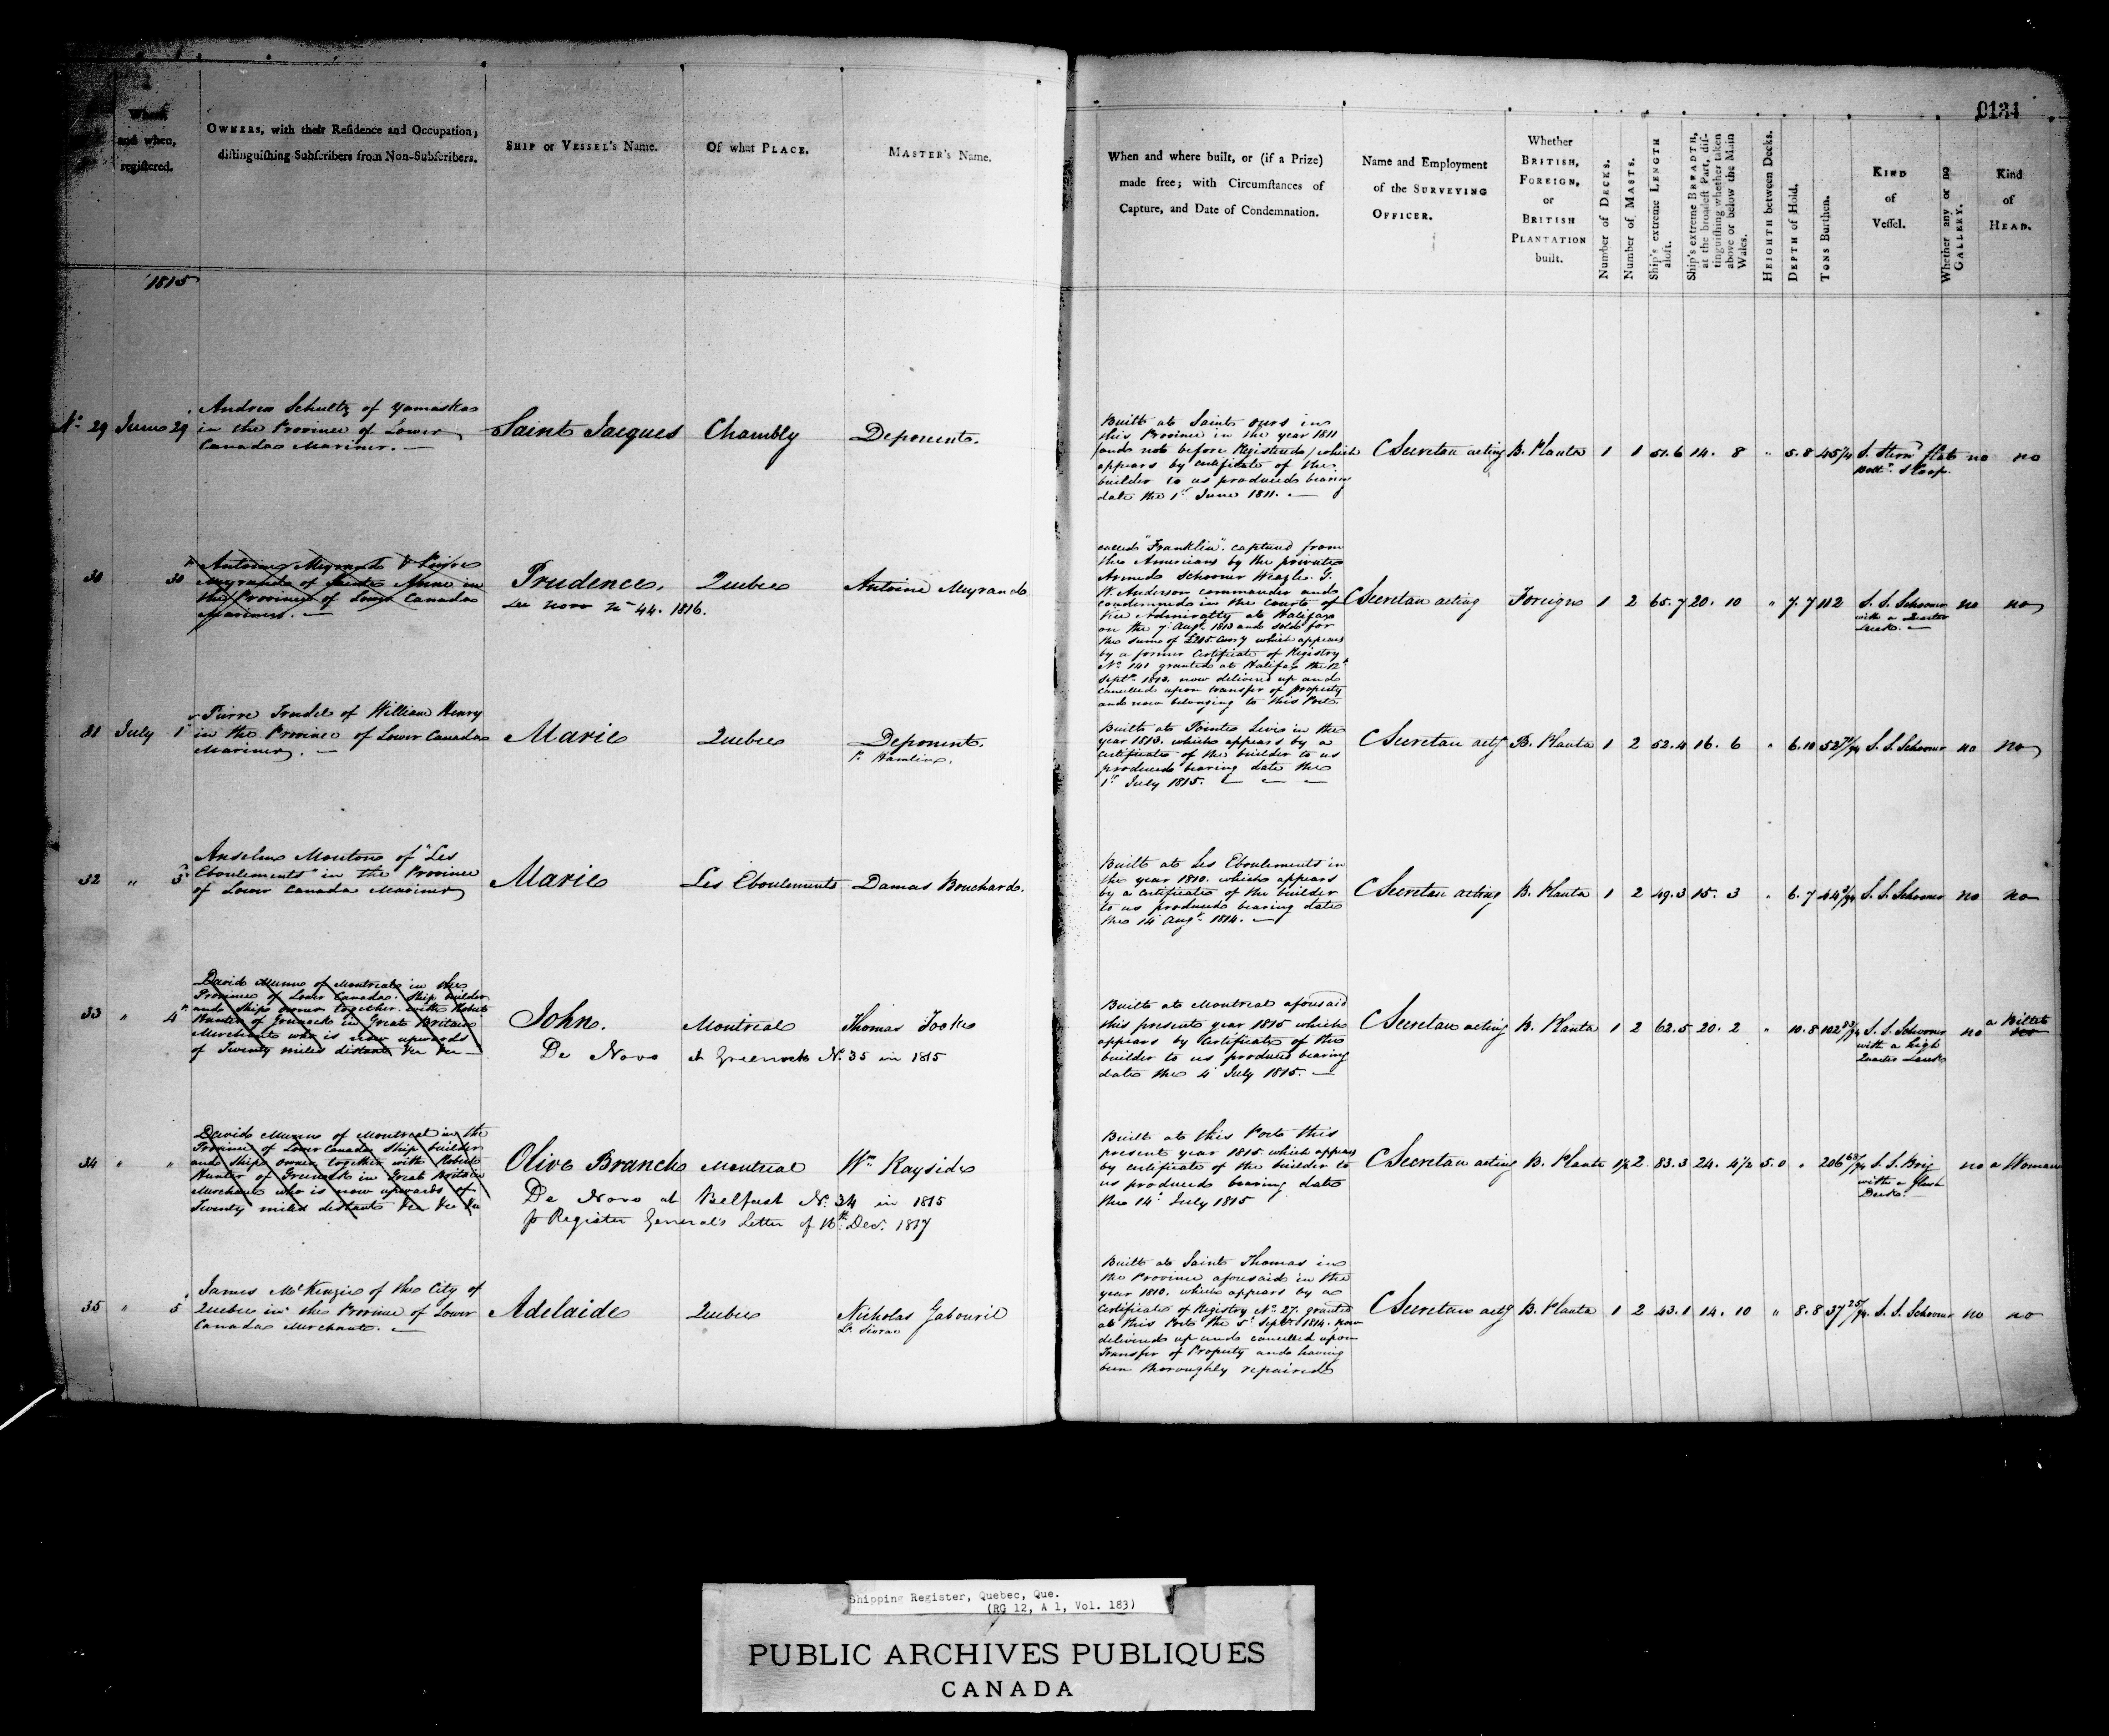 0134
Where
and when,
registered.
OWNERS, with their Residence and Occupation;
distinguishing Subscribers from Non-Subscribers.
SHIP or VESSEL's Name.
Of what PLACE.
MASTER's Name.
When and where built, or (if a Prize)
made free; with Circumstances of
Capture, and Date of Condemnation.
Name and Employment
of the SURVEYING
OFFICER.
Whether
BRITISH,
FOREIGN,
or
BRITISH
PLANTATION
built.
Number of DECKS.
Number of MASTS.
Ship's extreme LENGTH
aloft.
Ship's extreme BREADTH,
at the broadest Part, dis-
tinguishing whether taken
above or below the Main
Wales.
HEIGHTH between Decks.
DEPTH of Hold.
TONS Burthen.
KIND
of
Vessel.
Whether any or no
GALLERY.
Kind
of
HEAD.
1815
No. 29 June 29
Andrew Schultz of Yamaska
in the Province of Lower
Canada Mariner.
Saint Jacques
Chambly
Deponent.
Built at Saint Ours in
this Province in the year 1811
and not before Registered which
appears by Certificate of the
builder to us produced bearing
date the 1st June 1811.
C Secretan acting
B. Planta
1 1 51.6 14. 8 " 5.8
S. Stern flat
Bottd. Sloop.
no no
30 30
Antoine Meyrand & Pierre
Meyrand of Sainte Anne in
the Province of Lower Canada
Mariners.
Prudence.
De novo No 44. 1816.
Quebec
Antoine Meyrand
called "Franklin". captured from
the Americans by the private
Armed Schooner Weazle. J.
W. Anderson commander and
condemned in the Court of
Vice Admiralty at Halifax
on the 7 Augt. 1813 and sold for
the sum of which appears
by a former Certificate of Registry
No. 141 granted at Halifax the 12
Septr. 1813. now delivered up and
cancelled upon transfer of property
and now belonging to this Port.
C Secretan acting
Foreign
1 2 65.7 20. 10 " 7.7 112
S. S. Schooner
with a Quarter
Deck.
no no
31 July 1
Pierre Trudel of William Henry
in the Province of Lower Canada
Mariner.
Marie
Quebec
Deponent.
P. Hamline.
Built at Pointe Levi in the
year 1813. which appears by a
certificate of the builder to us
produced bearing date the
1st July 1815.
C Secretan actg
B. Planta
1 2 52.4 16. 6 " 6.10
S. S. Schooner
no no
32 " 3
Anselme Mouton of "Les
Eboulements" in the Province
of Lower Canada Mariner
Marie
Les Eboulements
Damas Bouchard.
Built at Les Eboulements in
the year 1810. which appears
by a Certificate of the builder
to us produced bearing date
the 14 Augt. 1814.
C Secretan acting
B. Planta
1 2 49.3 15. 3 " 6.7
S. S. Schooner
no no
33 " 4
David Munn of Montreal in the
Province of Lower Canada. Ship builder
and Ship owner together with Robert
Hunter of Greenock in Great Britain
Merchant who is now upwards
of Twenty miles distant &c &c
John.
De Novo at Greenock No. 35 in 1815
Montreal
Thomas
Built at Montreal aforesaid
this present year 1815 which
appears by Certificate of the
builder to us produced bearing
date the 4 July 1815.
C Secretan acting
B. Planta
1 2 62.5 20. 2 " 10.8 102 83/94
S. S. Schooner
with a high
Quarter Deck
no
a Billet
no
34 " "
David Munn of Montreal in the
Province of Lower Canada Ship builder
and Ship owner together with Robert
Hunter of Greenock in Great Britain
Merchant who is now upwards of
Twenty miles distant &c &c &c
Olive Branch
Montreal
Wm Rayside
De Novo at Belfast No. 34 in 1815
p Register General's Letter of 16th Dec. 1817
Built at this Port this
present year 1815. which appears
by certificate of the builder to
us produced bearing date
the 14 July 1815
C Secretan acting
B. Planta
1½ 2 83.3 24. 4½ 5.0 " 206 68/94
S. S. Brig
with a flush
Deck.
no a Woman
35 " 5
James McKenzie of the City of
Quebec in the Province of Lower
Canada Merchant.
Adelaide
Quebec
Nicholas Gabouril
Built at Saint Thomas in
the Province aforesaid in the
year 1810. which appears by a
Certificate of Registry No. 27. granted
at this Port the 5 Septr. 1814. now
delivered up and cancelled upon
Transfer of Property and having
been thoroughly repaired
C Secretan actg
B. Planta
1 2 43.1 14. 10 " 8.8 37 25/94
S. S. Schooner
no no
Shipping Register, Quebec, Que.
(RG 12, A 1, Vol. 183)
PUBLIC ARCHIVES PUBLIQUES
CANADA